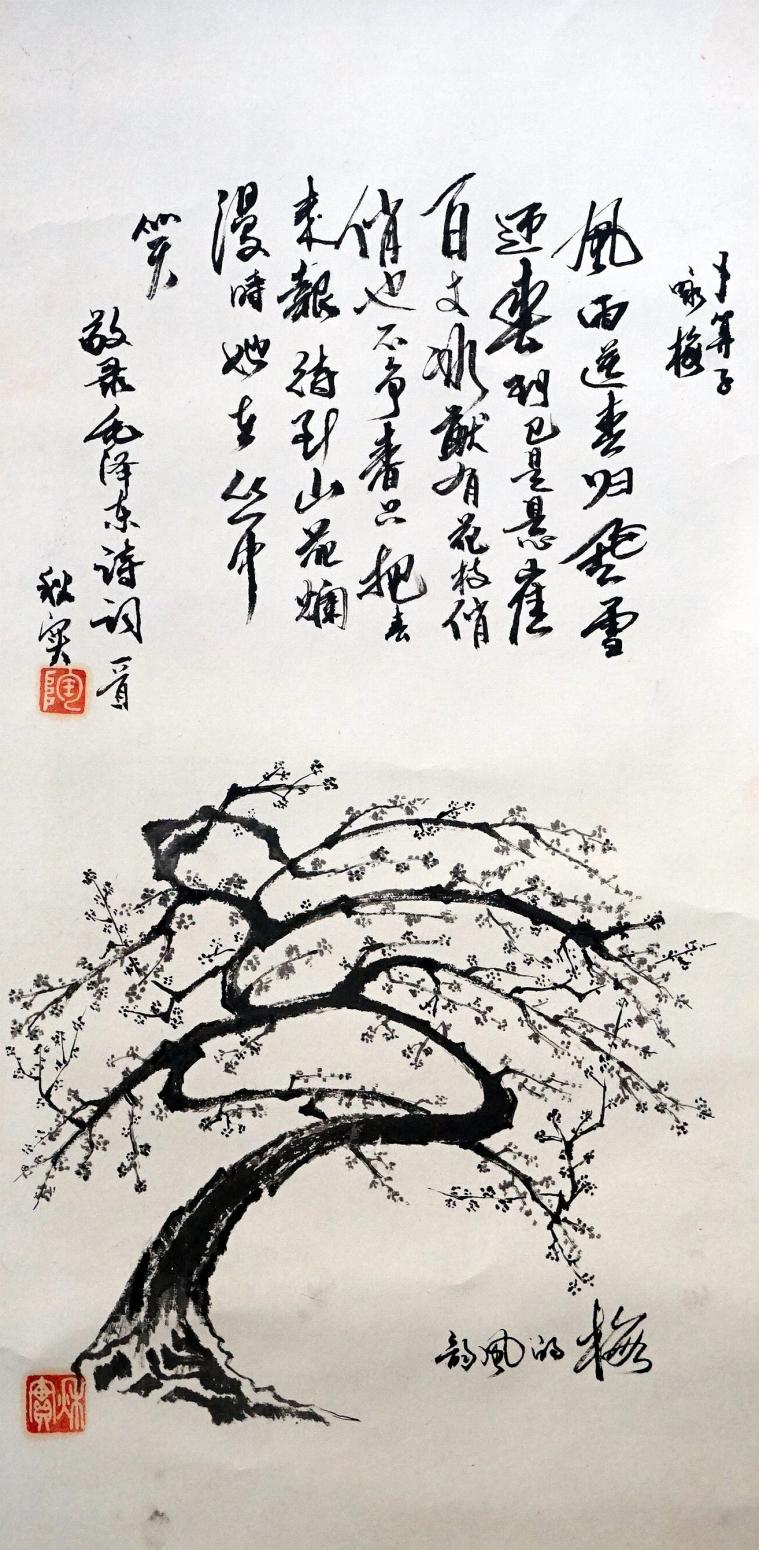 卜算子
咏梅
風雨送春归飛雪
迎春到已是悬崖
百丈冰猷有花枝俏
俏也不争春只把春
来報待到山花爛
漫時她在丛中
笑
敬录毛泽东詩词一首
秋实
陶
梅的風韵
秋實